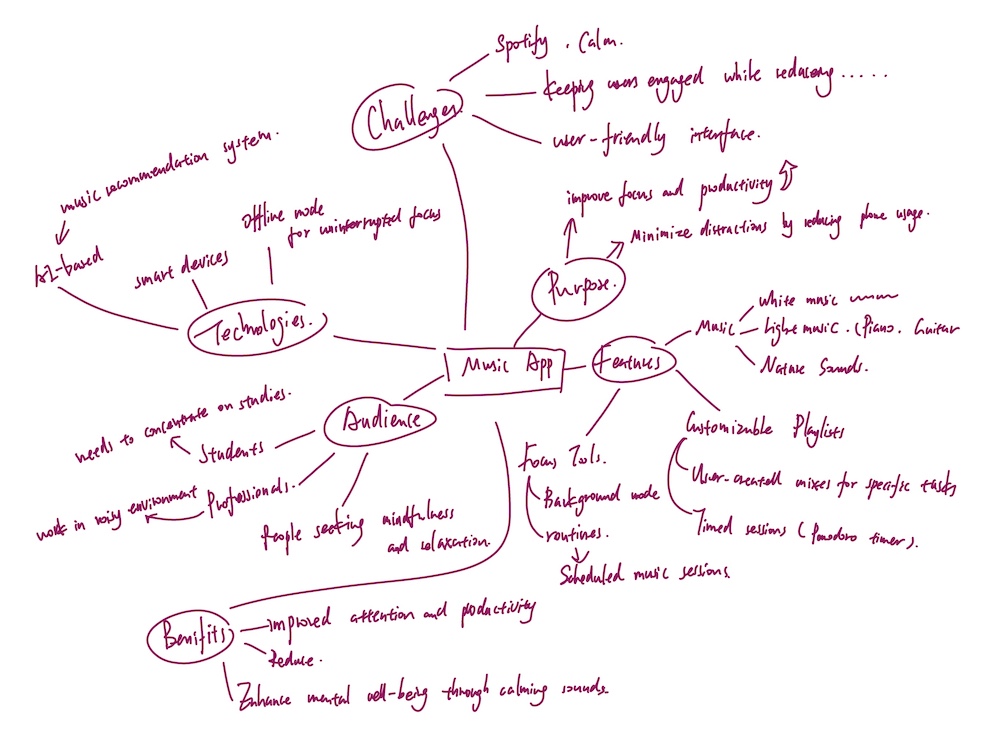 Spotify. Calm.
Keeping users engaged while reducing.....
user-friendly interface.
Challenges
music recommendation system.
AI-based
smart devices
offline mode
for uninterrupted focus
Technologies.
improve focus and productivity
Minimize distractions by reducing phone usage.
Purpose.
Music App
Features
Music
White music
Light music. (Piano. Guitar
Nature Sounds.
Customizable Playlists
User-created mixes for specific tasks
Timed sessions (Pomodoro timers).
Focus Tools.
Background mode
routines.
Scheduled music sessions.
Audience
needs to concentrate on studies.
Students
work in noisy environment
Professionals.
People seeking mindfulness
and relaxation.
Benifits
Improved attention and productivity
Reduce.
Enhance mental well-being through calming sounds.